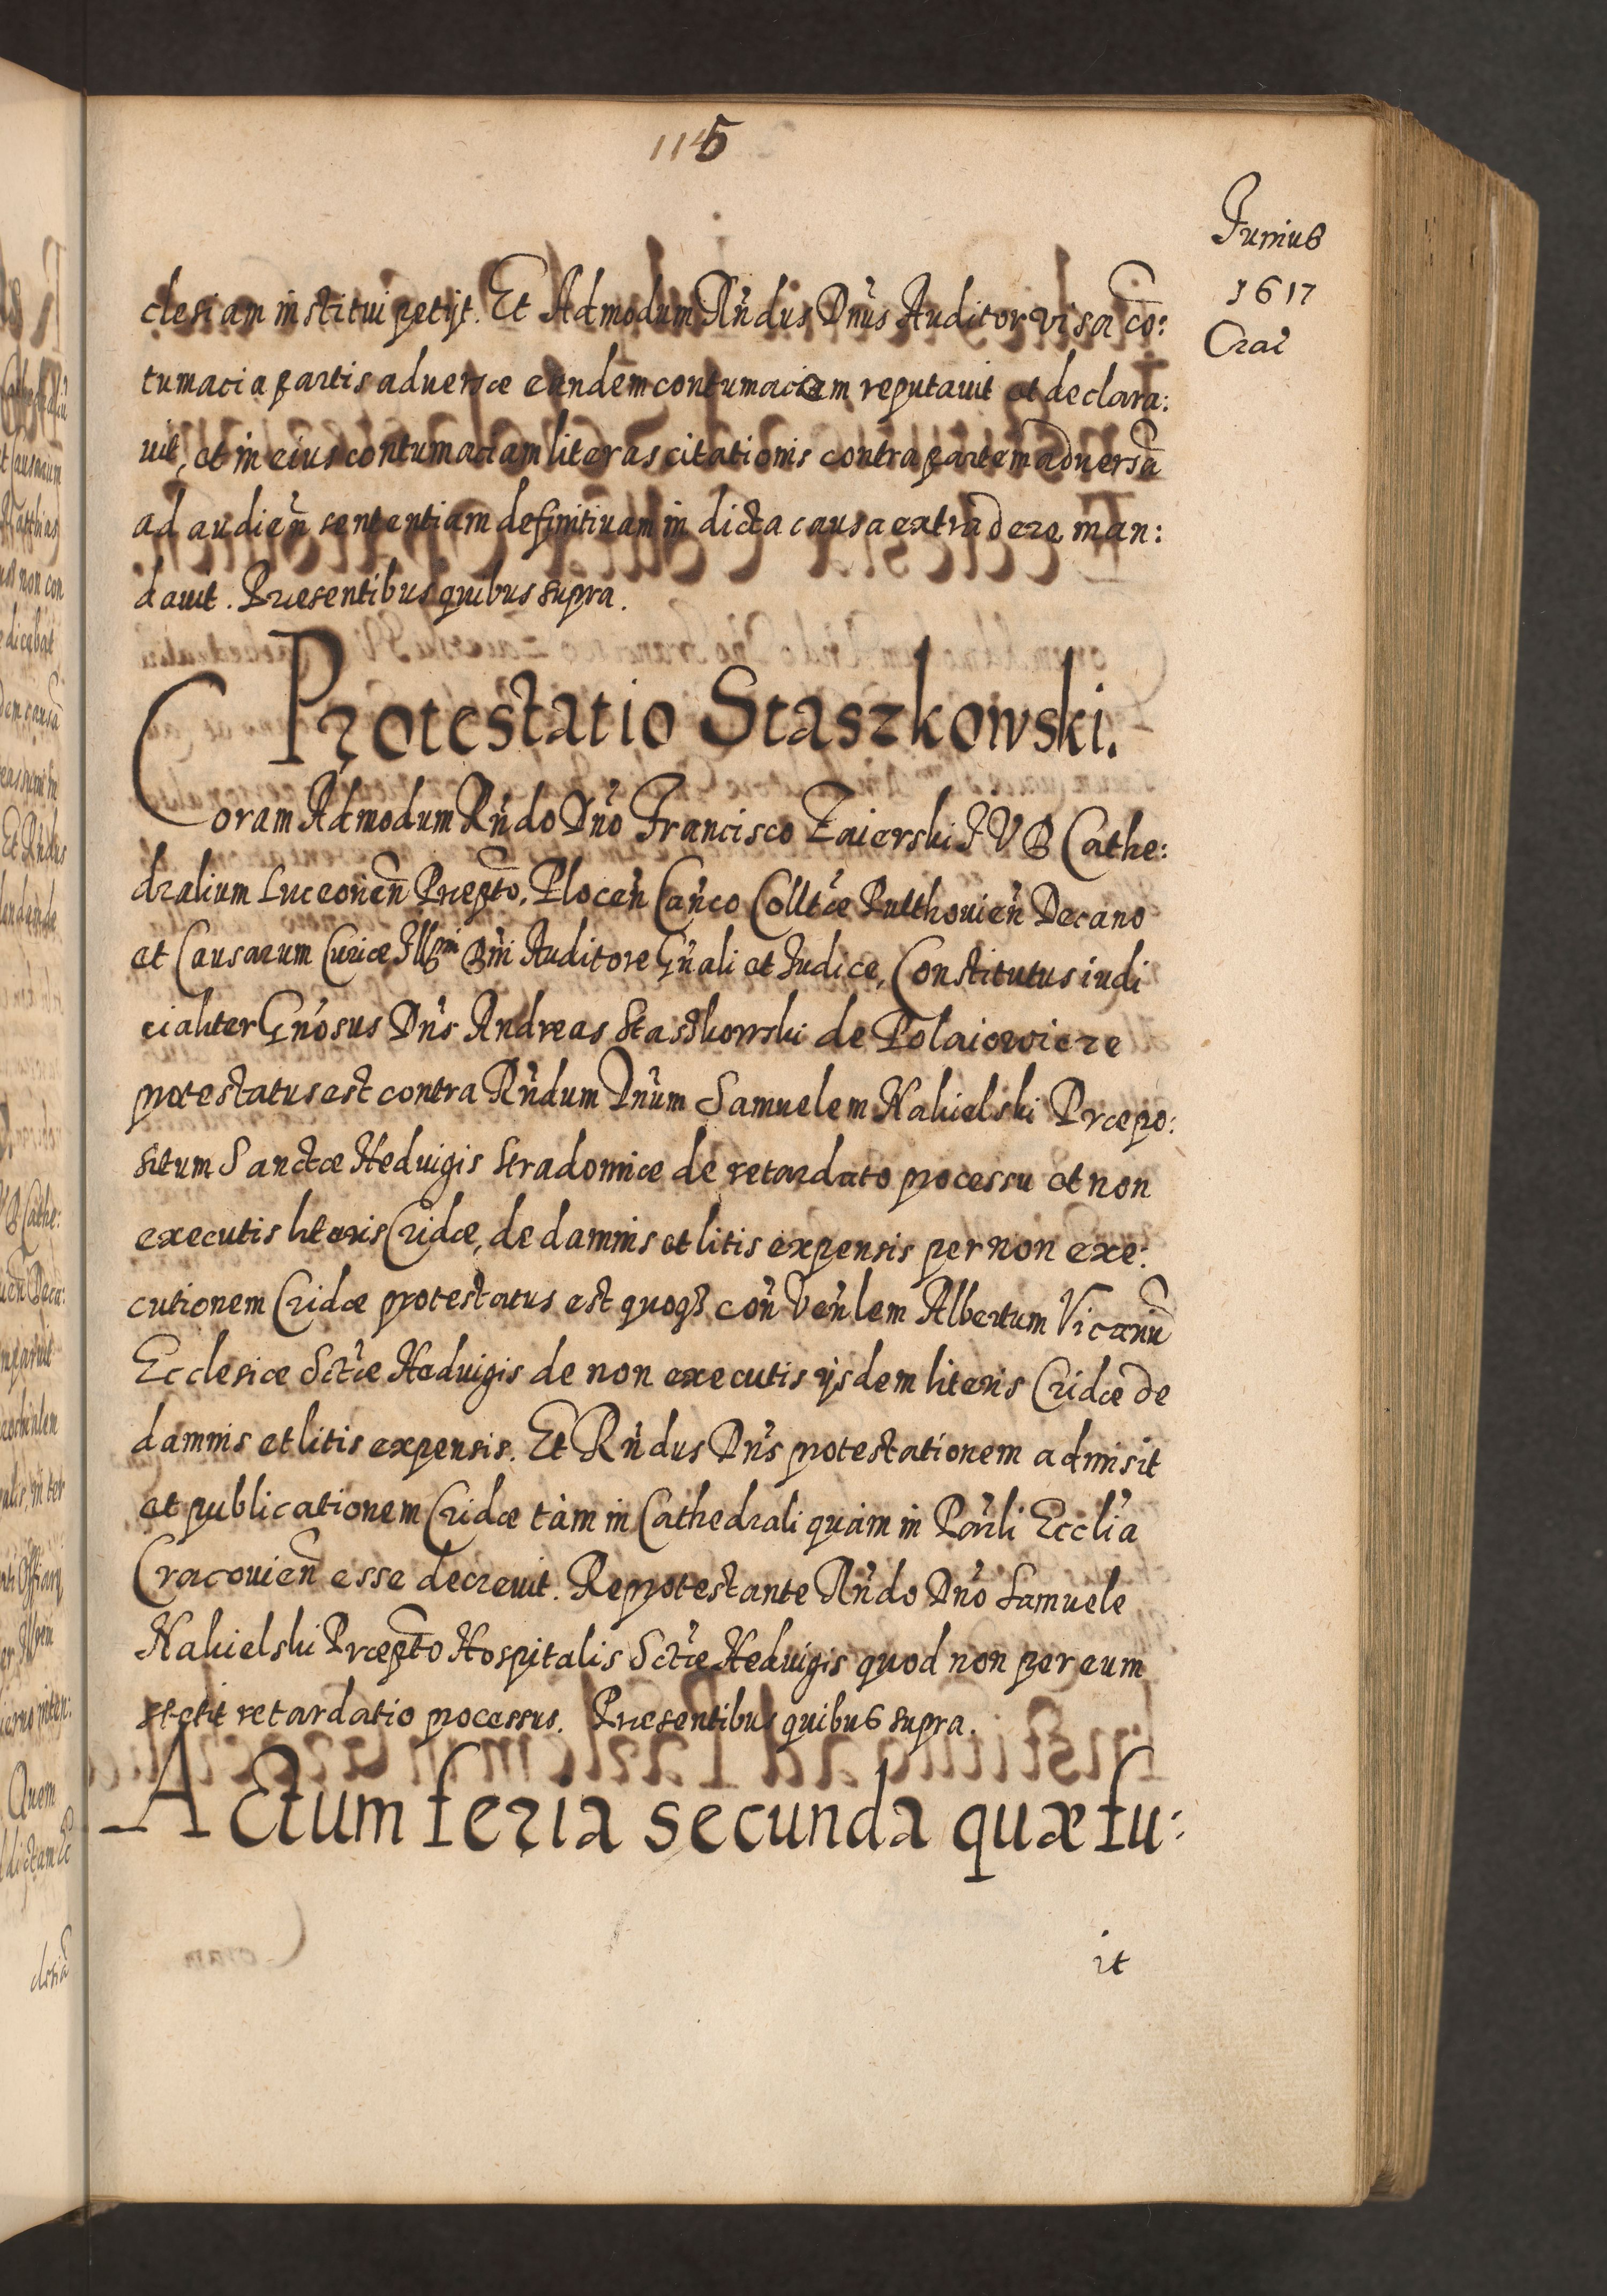 1145
Junius
1617
Crac
clesiam institui petijt. Et Admodum Rndus Dnus Auditor visa co:
tumacia partis aduersæ eandem contumaciam reputauit et declara:
uit, et in eius contumaciam literas citationis contra partem aduersã
ad audieñ sententiam definitiuam in dicta causa extradere man:
dauit. Præsentibus quibus supra.
Protestatio Staszkowski.
Coram Admodum Rndo Dno Francisco Zaierski JVD Cathe:
dralium Luceoneñ Præpto, Ploceñ Canco Colltæ Pulthouieñ Decano
et Causarum Curiæ Illmi Dni Auditore Gnali et Judice, Constitutus iudi
cialiter Gnosus Dns Andreas Staszkowski de Polaiowicze
protestatus est contra Rndum Dnum Samuelem Nakielski Præpo:
situm Sanctæ Heduigis Stradomiæ de retardato processu et non
executis literis Cridæ, de damnis et litis expensis per non exe:
cutionem Cridæ protestatus est quoqz con Venlem Albertum Vicariũ
Ecclesiæ Sctæ Heduigis de non executis ijsdem literis Cridæ de
damnis et litis expensis. Et Rndus Dns protestationem admisit
et publicationem Cridæ tàm in Cathedrali quàm in Parli Ecclia
Cracouieñ esse decreuit. Reprotestante Rndo Dno Samuele
Nakielski Præpto Hospitalis Sctæ Heduigis quod non per eum
stetit retardatio processus. Præsentibus quibus supra.
Actum feria secunda quæ fu:
it